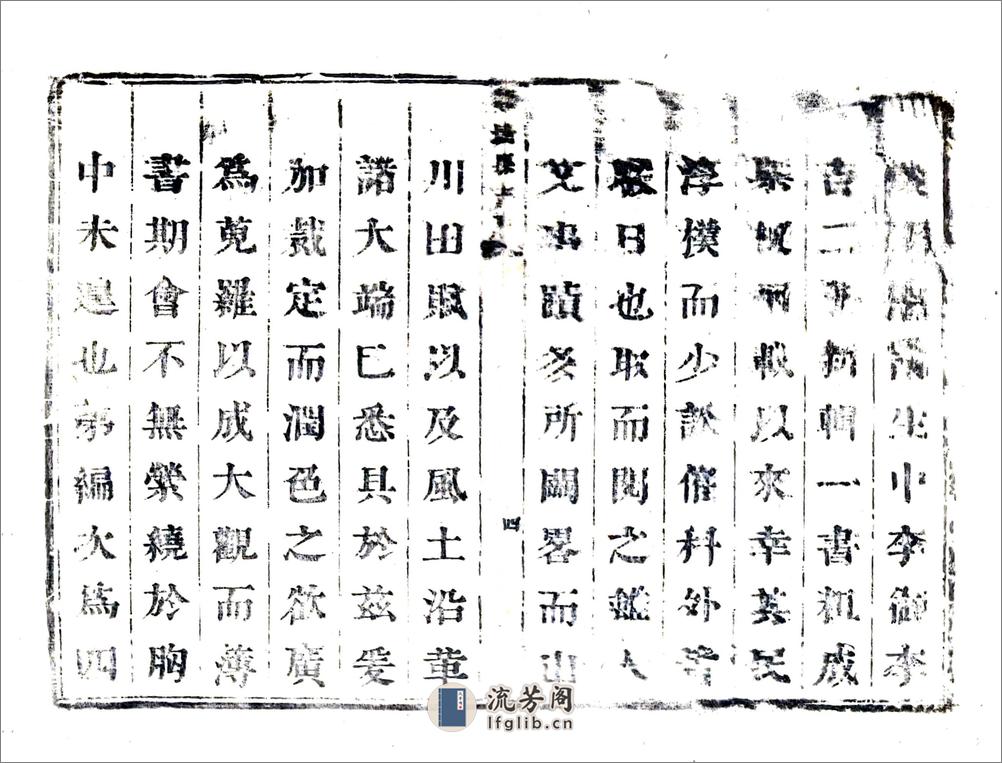 生中李御李
吉二 輯一書粗成
載以來幸其民
淳樸而少訟催科外
暇日也取而閱之 人
文事蹟多所闕畧而山
四
川田賦以及風土沿革
諸大端已悉具於茲爰
加裁定而潤色之欲廣
為蒐羅以成大觀而簿
書期會不無縈繞於胸
中未遑也第編次為四
流芳阁
lfglib.cn